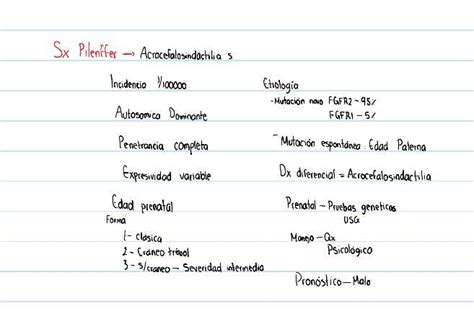 Sx Pilenffer → Acrocefalosindactilia 5
Incidencia 1/100000
Autosomica Dominante
Penetrancia completa
Expresividad variable
Edad prenatal
Forma
1- Clásica
2- Craneo trébol
3- s/craneo – Severidad intermedia
Etiología
- Mutación novo FGFR2 - 95%
FGFR1 - 5%
- Mutación espontánea: Edad Paterna
Dx diferencial = Acrocefalosindactilia
Prenatal – Pruebas geneticas
USG
Manejo – Qx
Psicológico
Pronóstico – Malo